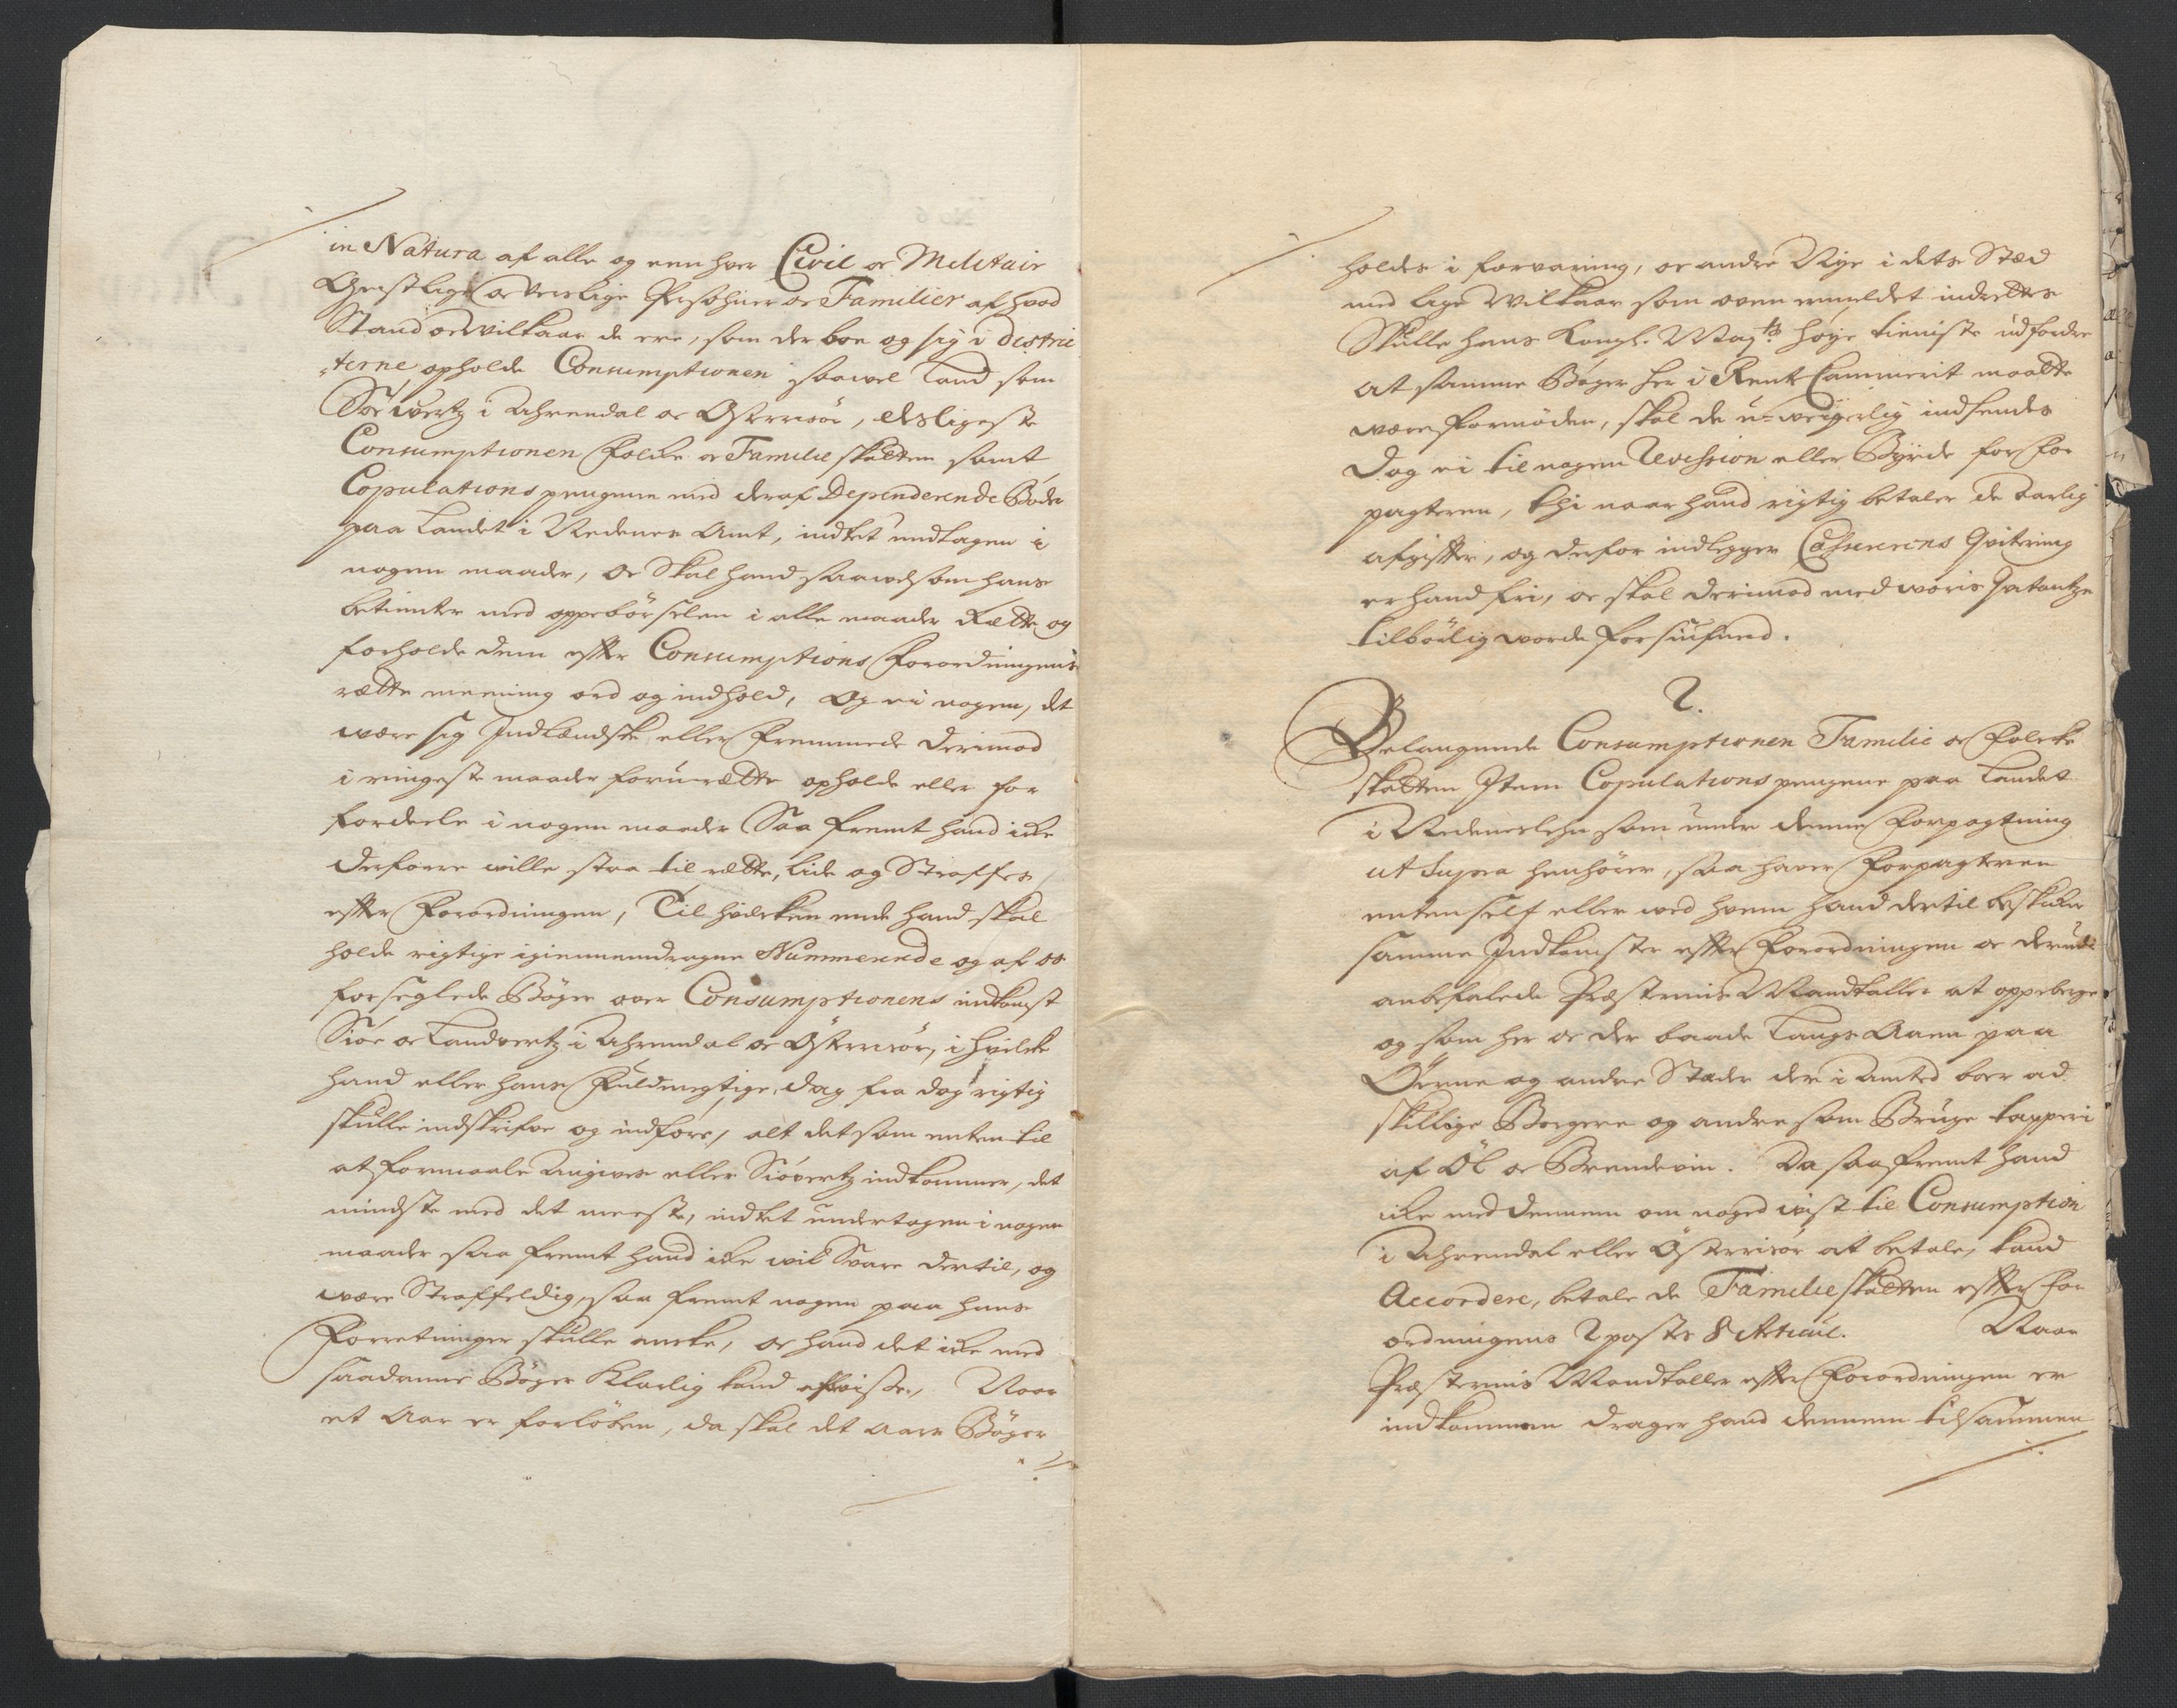 in Natura af alle og een hver Civil oc Militair
Geistlige oc Verslige Persohner oc Familier af hvad
Stand oc Vilkaar de ere, som der boe og sig i Distric
terne opholde Consumptionen saavel Land som
Söe Vertz i Ahrendal oc Österrisöer, desligeste
Consumptionen Folke oc Familie skatten samt
Copulations pengene med deraf Dependerende Böder
paa Landet i Nedenes Amt, indtet undtagen i
nogen maader, oc Skal hand saavelsom hans
betiente med oppebörselen i alle maader Rætte og
forholde dem efter Consumptions Forordningens
rætte meening ord og indhold, Og ei nogen, det
være sig Indlændske eller Fremmede derimod
i ringeste maader foruurætte opholde eller for
fordeele i nogen maader Saa fremt hand icke
derforre wille staa til rætte, lide og Straffes
efter Forordningen, Til hvilcken ende hand skal
holde rigtige igiennemdragne Nummererede og af os
forseglede Bøger over Consumptionens indkomst
Siöe oc Landvertz i Ahrendal oc Österrisör, i hvilcke
hand eller hans Fuldmegtige, dag fra dag rigtig
skulle indskrifve og indföre, alt det som enten til
at formaale Angives eller Siövertz indkommer, det
mindste med det meeste, indtet undertagen i nogen
maader saa fremt hand icke wil Svare dertil, og
være Straffeldig, saa fremt nogen paa hans
Forretninger skulle ancke, oc hand det icke med
saadanne Bøger Klarlig kand afviise, Naar
et Aar er forløben, da skal det Aars Bøger
holdes i forvaring, oc andre Nye i dets Stæd
med lige Vilkaar som ovenermeldet indrettes
Skulle hans Kongl. May.ts höye tieniste udfordre
at samme Bøger her i Rente Cammerit maatte
være formøden, skal de u-weigerlig indsendes
Dog ei til nogen Revission eller Byrde for For
pagteren, thi naar hand rigtig betaler de aarlig
afgifter, og derfor indlegger Casserens Qvitering
er hand fri, oc skal derimod med woris Qvitantze
tilbörlig worde forsiufned.
2.
Belangende Consumptionen Familie oc Folcke
skatten Item Copulations pengene paa Landet
i Nedeneslehn som under denne Forpagtning
ut Supra henhører, saa haver Forpagteren
enten self eller ved hvem hand dertil beskicker
samme Indkomster efter Forordningen oc derudi
anbefalede Præsternis Mandtaller at oppeberge
og som her oc der baade Langs Aaen paa
Öerne og andre Stæder der i Amted boer ad
skillige Borgere og andre som Bruge tapperi
af Öl oc Brendevin. Da saafremt hand
icke med dennem om noged vist til Consumption
i Ahrendal eller Österrisör at betale, kand
Accordere, betale de Familie skatten efter For
ordningens 2 posts 8 Articul. Naar
Præsternis Mandtaller efter Forordningen er
indkommen drager hand dennem tilsammen